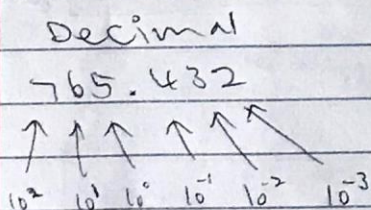 Decimal
765.432
10² 10¹ 10⁰ 10⁻¹ 10⁻² 10⁻³